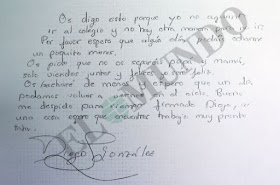 Os digo esto porque yo no aguanto
ir al colegio y no hay otra manera para no ir.
Por favor espero que algún día podáis odiarme
un poquito menos.
Os pido que no os separéis papá y mamá,
solo viéndoos juntos y felices yo seré feliz.
Os echaré de menos y espero que un día
podamos volver a vernos en el cielo. Bueno,
me despido para siempre. Firmado Diego, a
una cosa espero que encuentres trabajo muy pronto
Tata.
Diego González
EL MUNDO